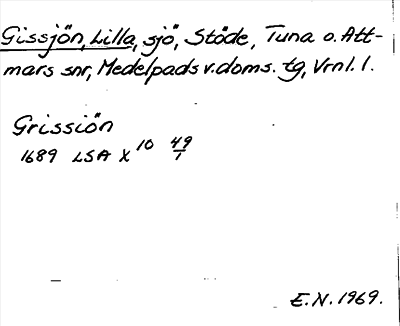 Gissjön, Lilla, sjö, Stöde, Tuna o. Att-
mars snr, Medelpads v. doms. tg, Vrnl. l.
Grissiön
1689 LSA X 10 49/1
E.N. 1969.